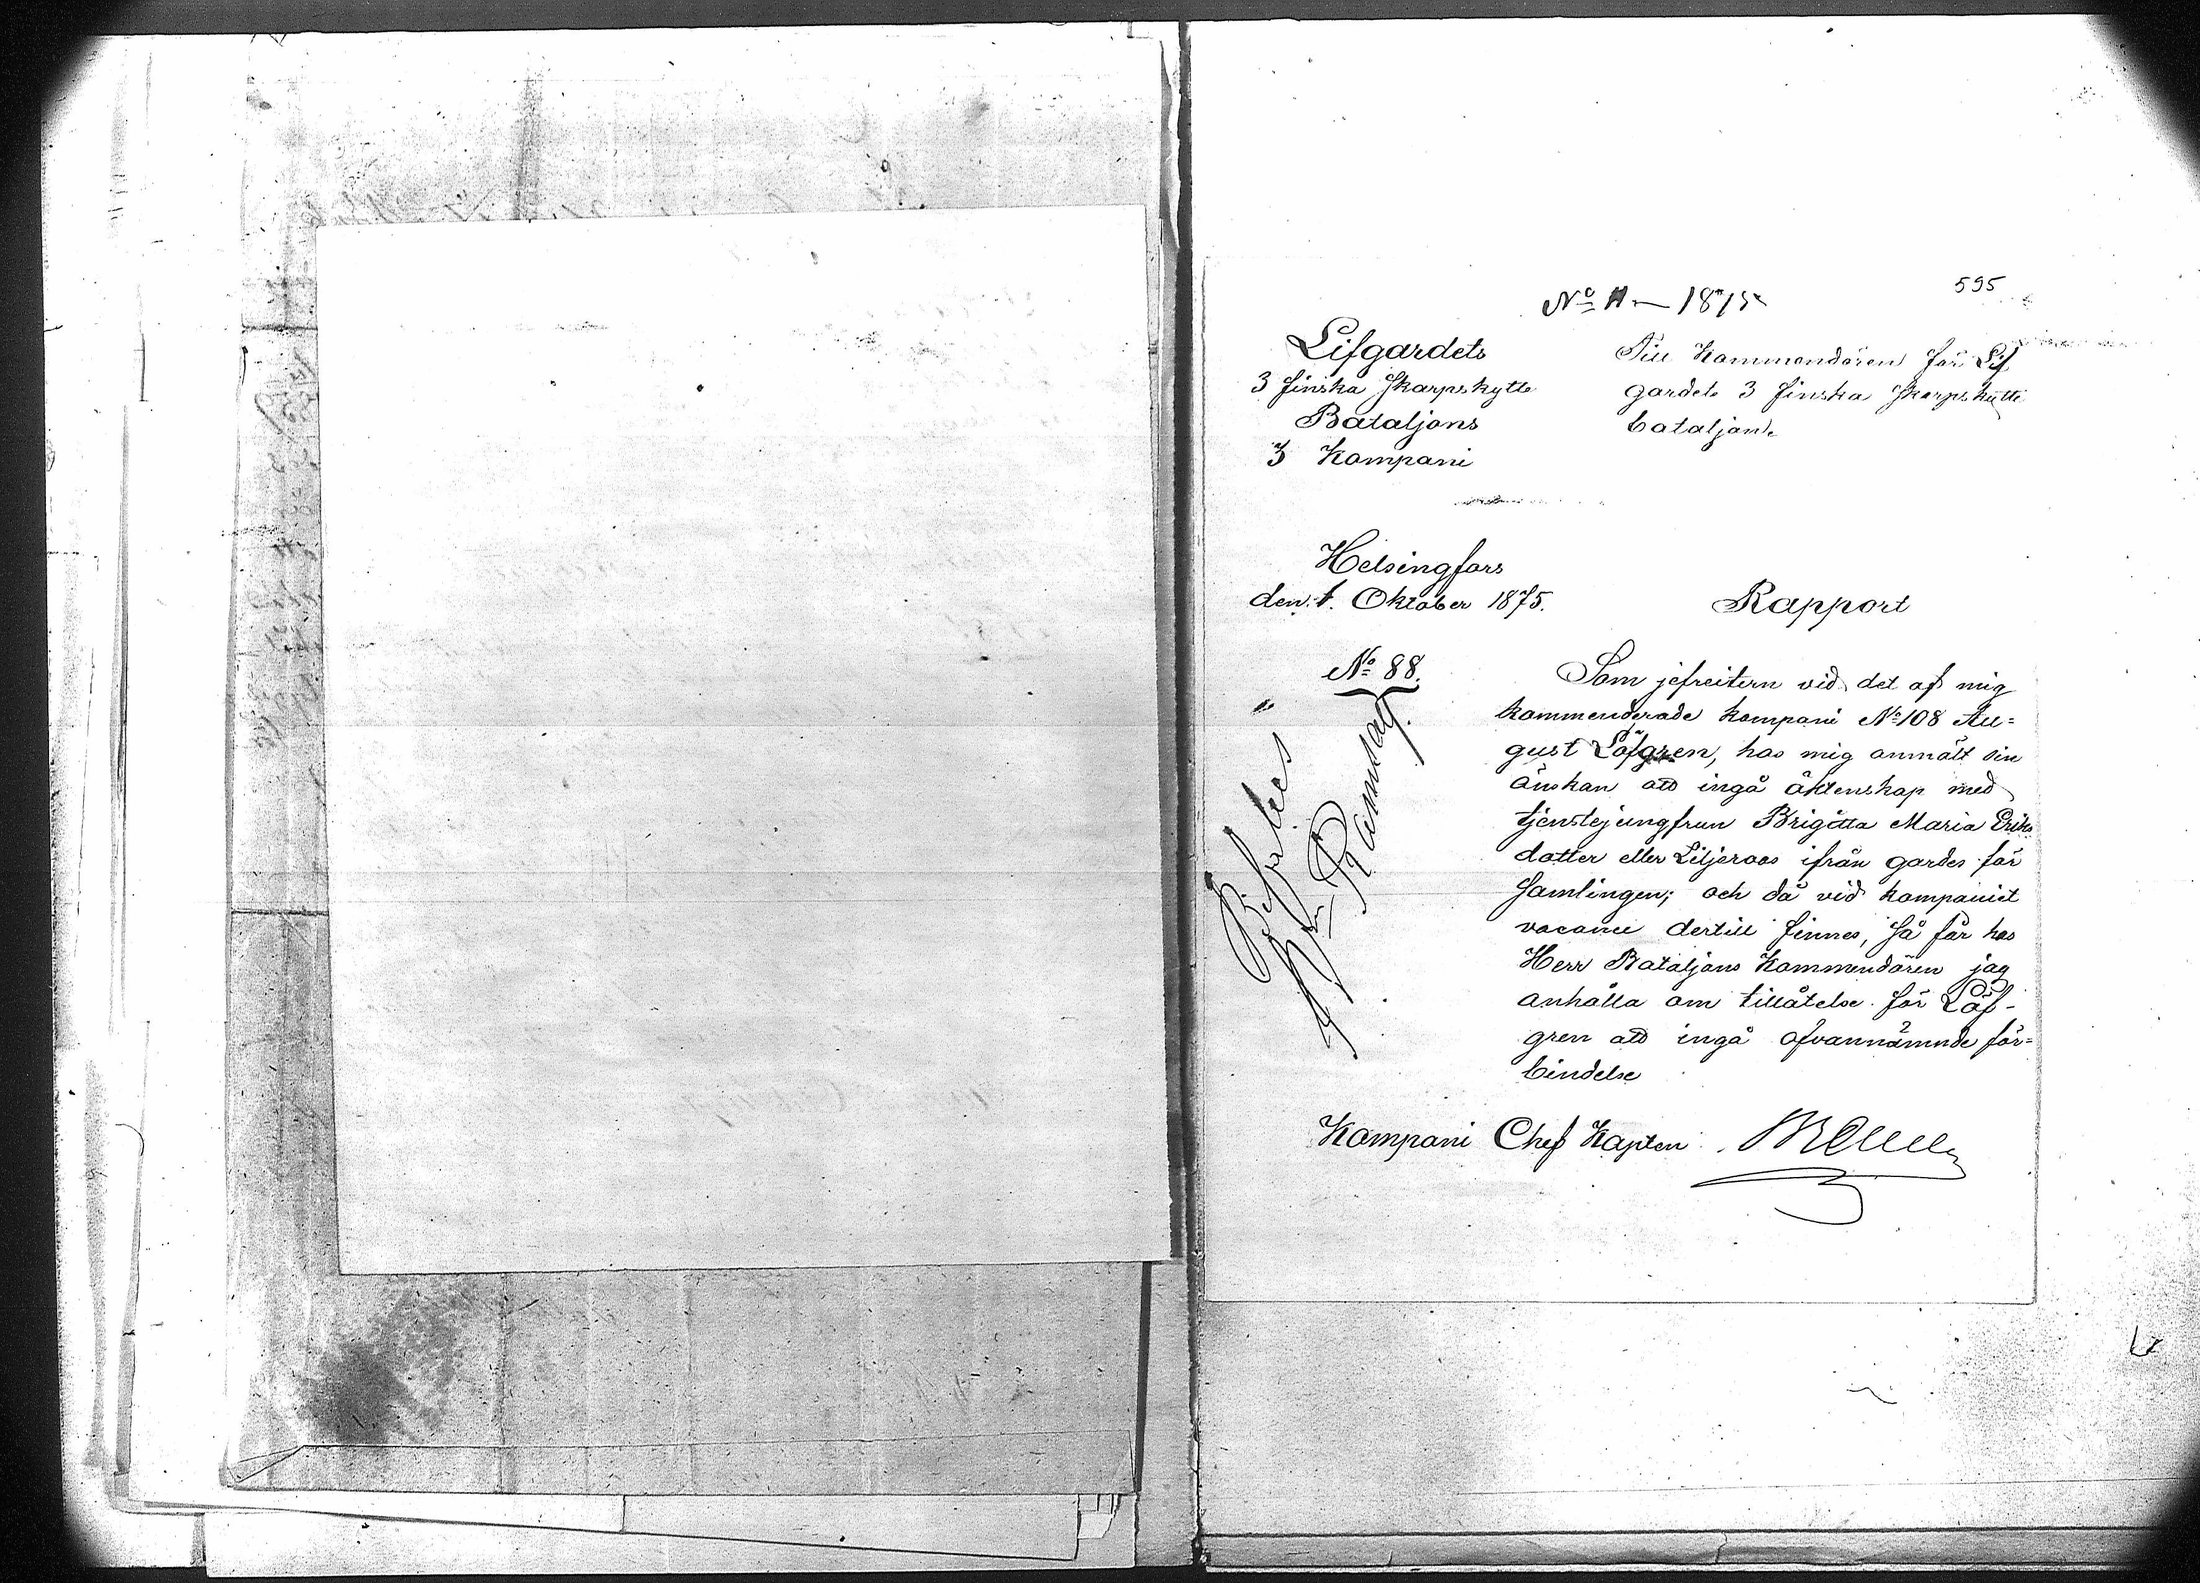 595
No 11 — 1875
Lifgardets
3 Finska Skarpskytte
Bataljons
3 Kompani
Till Kommendören för Lif
gardets 3 Finska Skarpskytte
bataljon.
Helsingfors
den 1. Oktober 1875.
No 88.
Rapport
Som jefreitern vid det af mig
kommenderade kompani No 108 Au=
gust Löfgren, hos mig anmält sin
önskan att ingå äktenskap med
tjenstejungfrun Brigitta Maria Eriks
dotter eller Liljeroos ifrån gardes för
samlingen; och då vid kompaniet
vacance dertill finnes, så får hos
Herr Bataljons Kommendören jag
anhålla om tillåtelse för Löf-
gren att ingå ofvannämnde för=
bindelse
Kompani Chef Kapten
Bifalles
Ramsay.